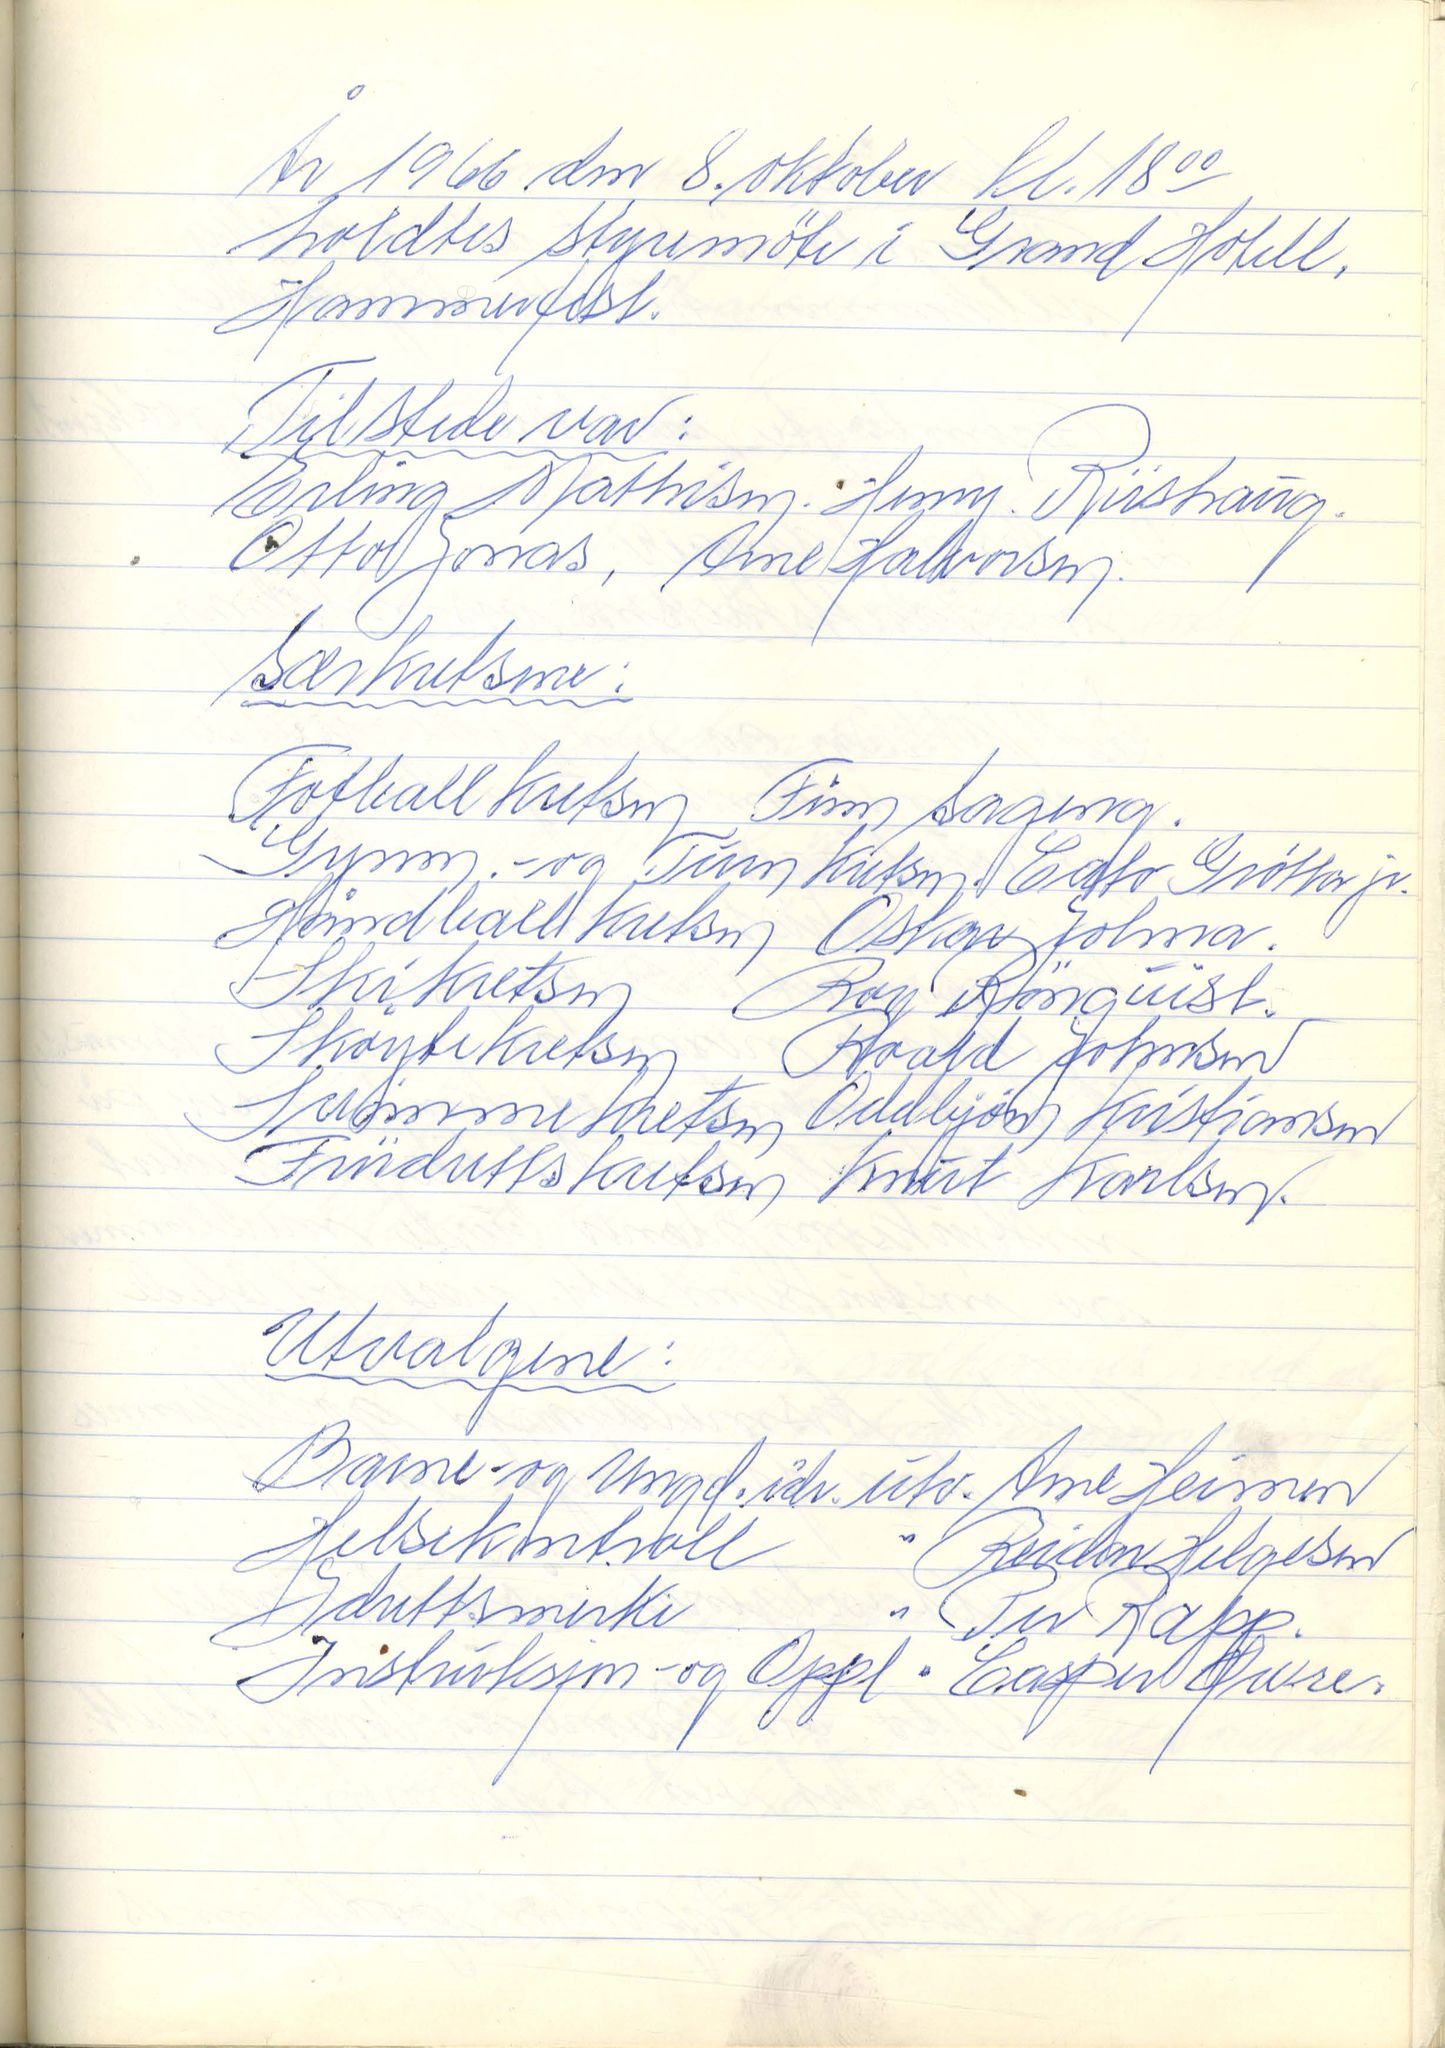 År 1966 den 8. oktober kl. 18 00
holdtes styremöte i Grand Hotell,
Hammerfest.
Tilstede var:
Erling Mathisen. Henry. Riishaug.
Otto Jonas, Arne Halvorsen.
Særkretsene:
Fotballkretsen Finn Sagen
Gymn.-og Turnkretsen. Cato Grötta jr.
Håndballkretsen Oskar Jolma.
Skikretsen Roy Rönquist.
Skøytekretsen Roald Johnsen
Svømmekretsen Oddbjörn Kristiansen
Friidrettskretsen Knut Karlsen.
Utvalgene:
Barne-og Ungd.idr. utv. Arne Heimen
Helsekontroll " Reidar Helgesen
Idrettsmerke " Per Rapp.
Instruksjon-og Oppl " Casper